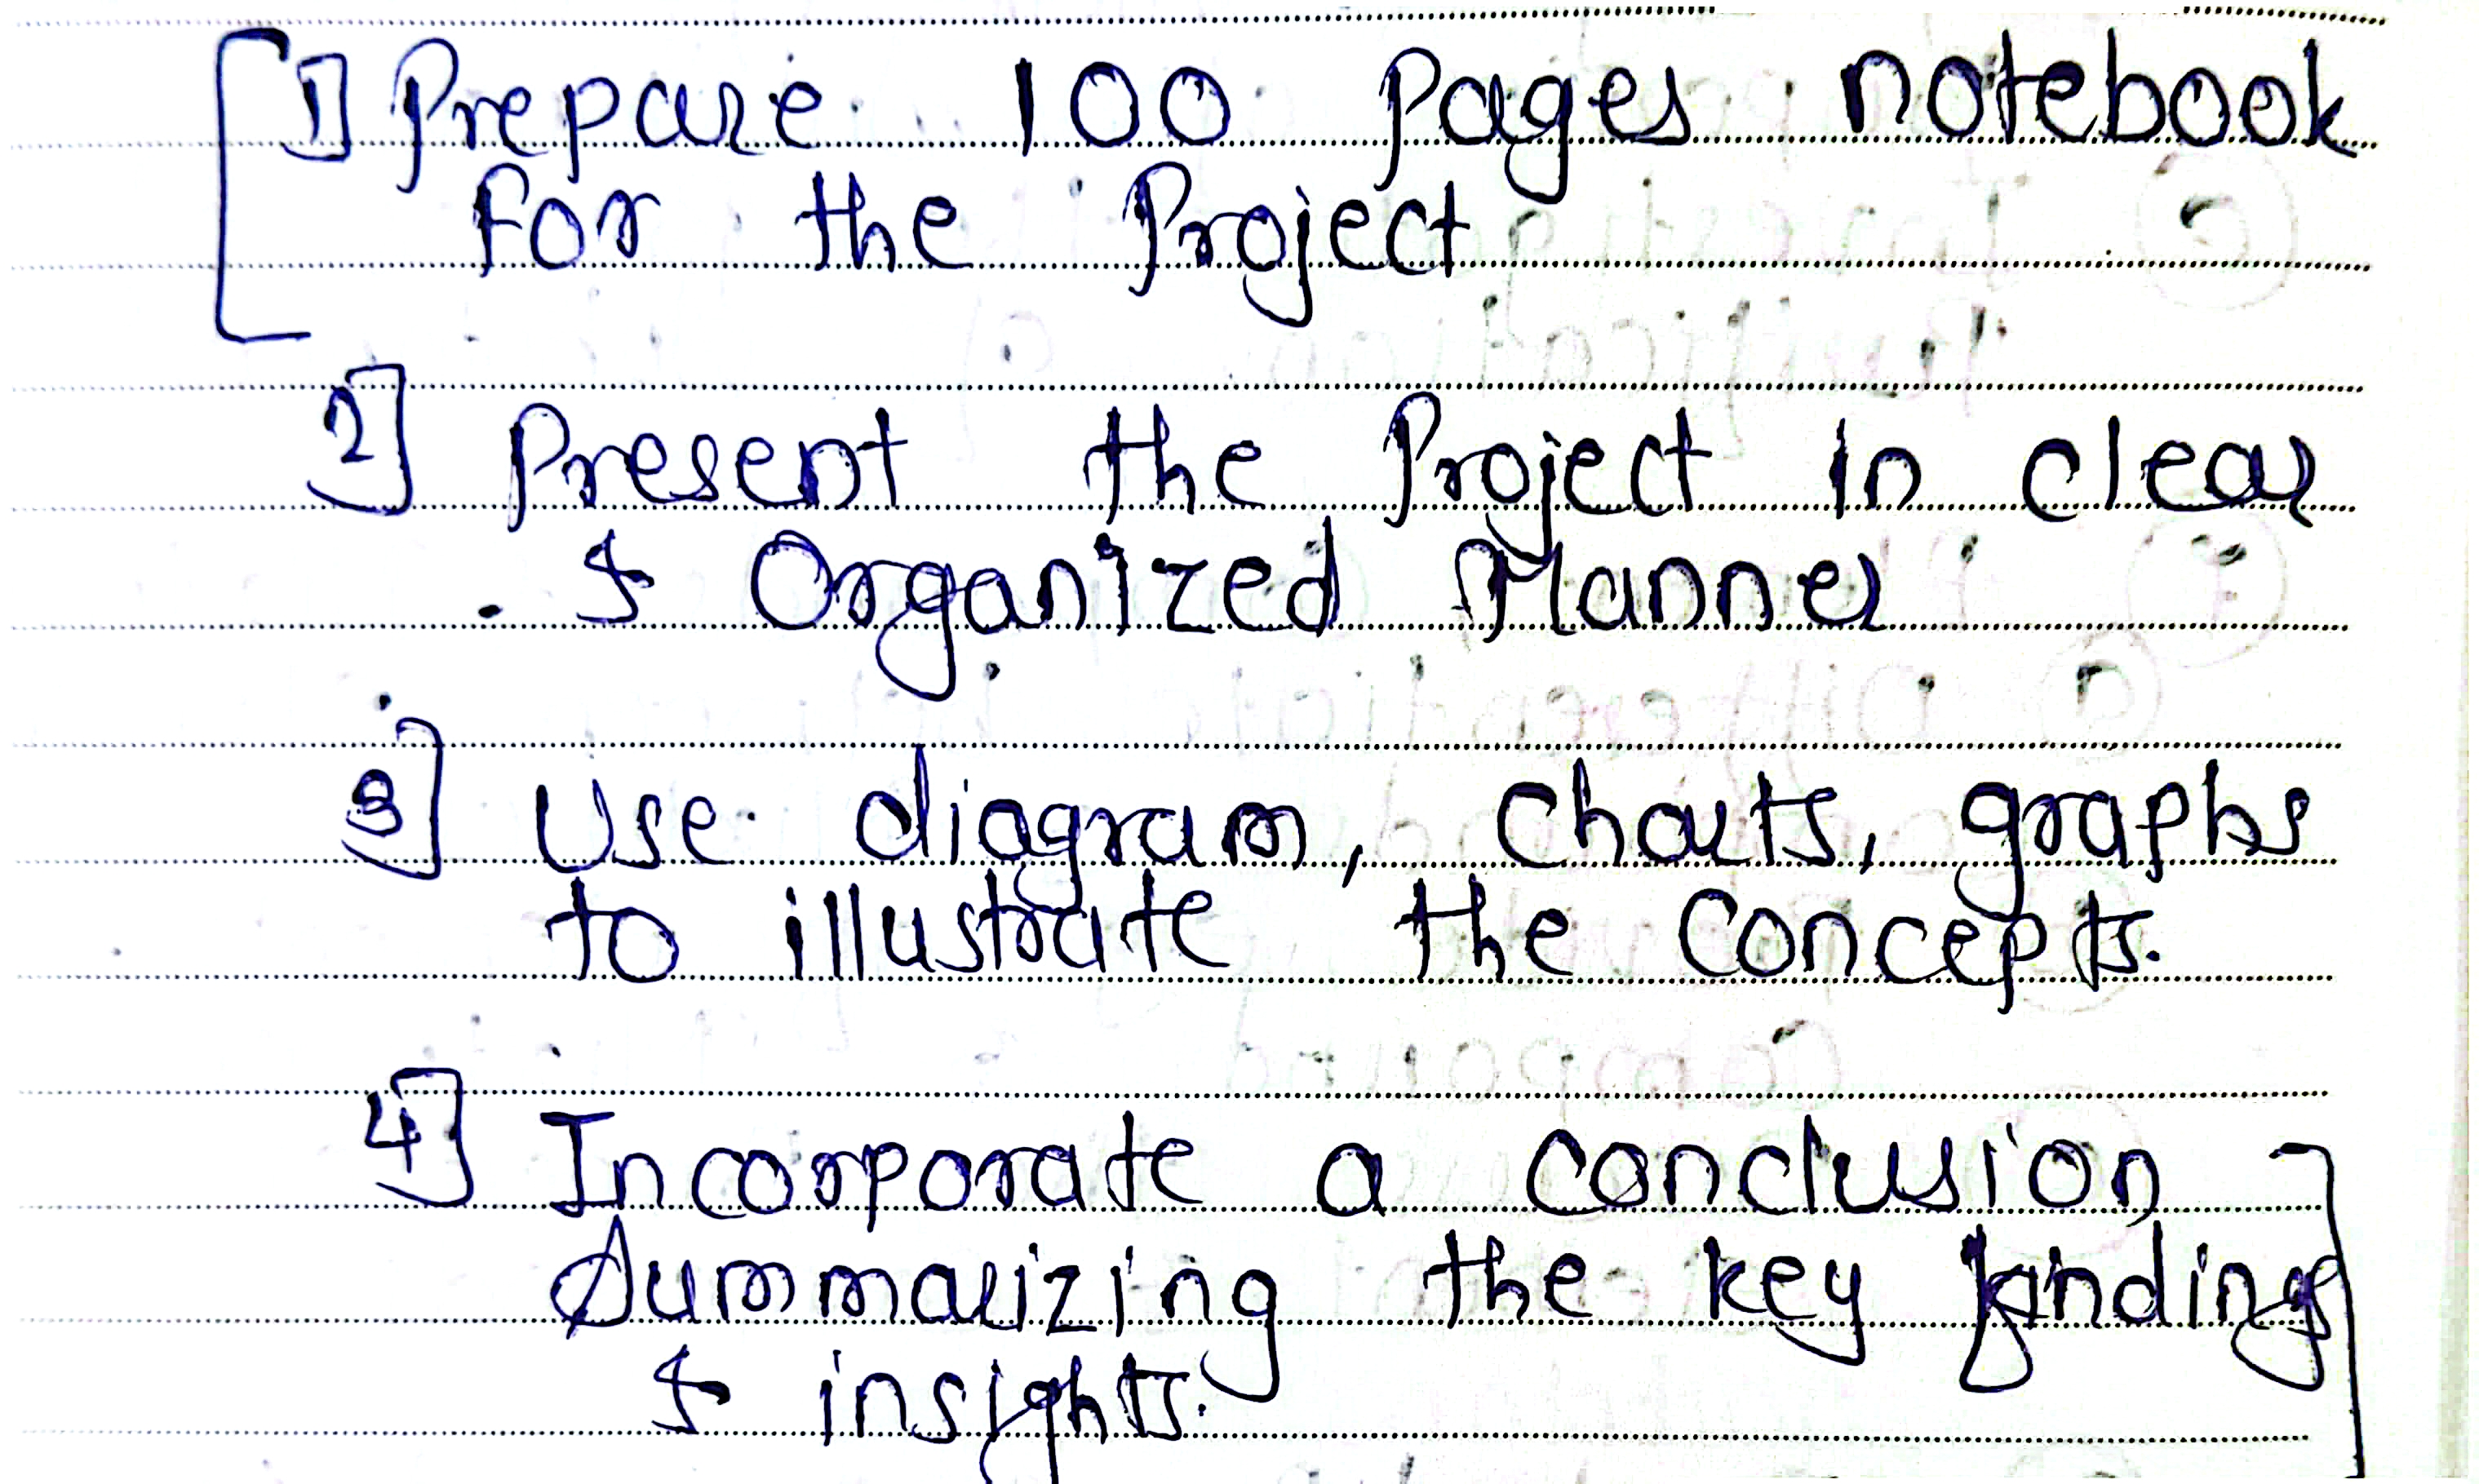 1] Prepare 100 pages notebook
for the Project
2] Present the Project in clear
& Organized Manner
3] Use diagram, charts, graphs
to illustrate the Concepts.
4] Incorporate a conclusion
Summarizing the key findings
& insights.